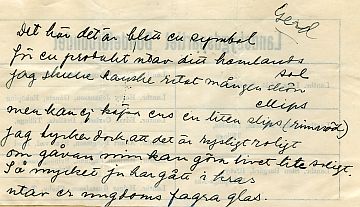 Gerd
Det här det är blott en symbol
för en produkt utav ditt hemlands
sol
jag skulle kanske ritat mången skön
ellips
men kan ej köpa ens en liten slips (rimnöd)
jag tycker dock att det är rysligt roligt
om gåvan min kan göra livet lite soligt.
Så mycket ju har gått i kras
utav er ungdoms fagra glas.